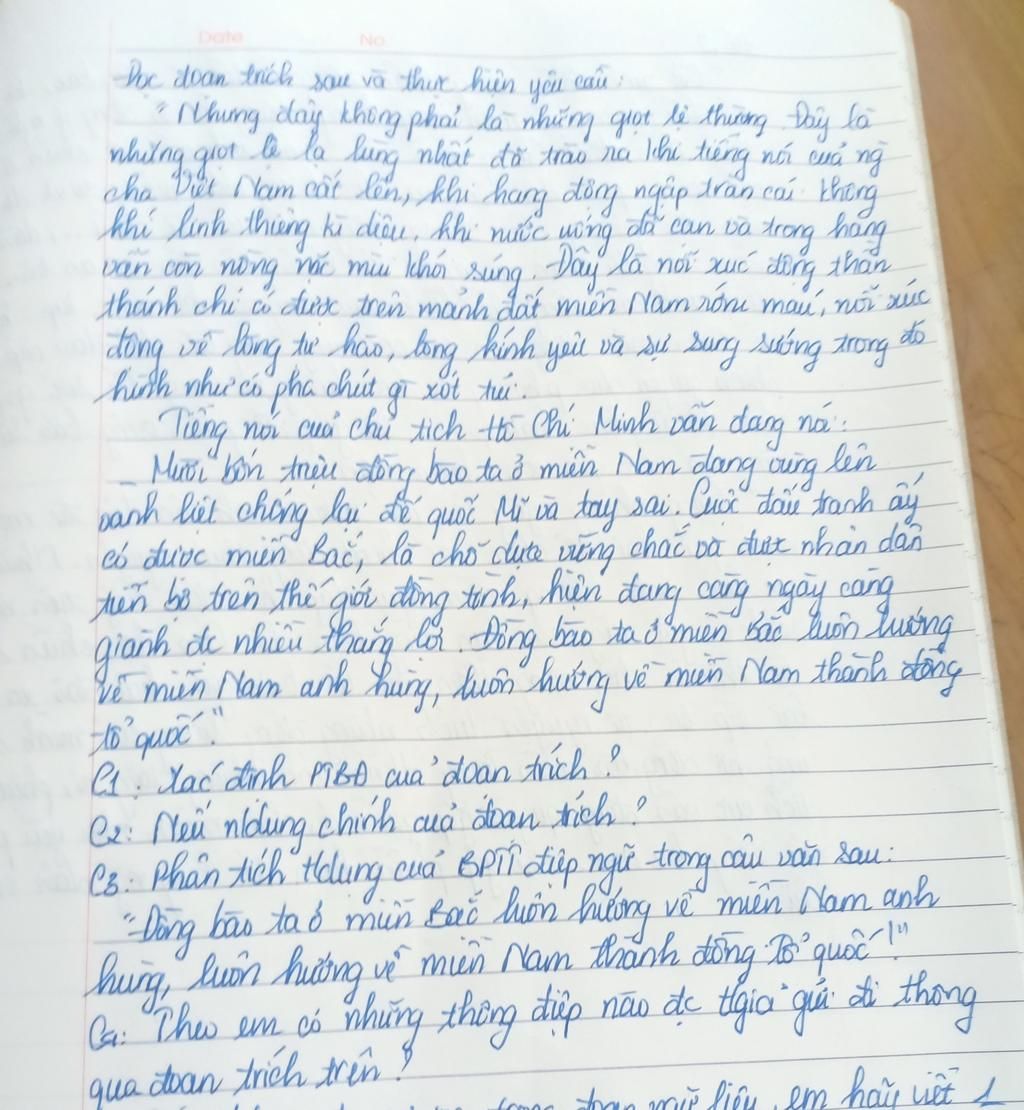 Date No
Đọc đoạn trích sau và thực hiện yêu cầu:
"Nhưng đây không phải là những giọt lệ thường. Đây là
những giọt lệ lạ lùng nhất đã trào ra khi tiếng nói của ng
cha Việt Nam cất lên, khi hang động ngập tràn cái không
khí linh thiêng kì diệu, khi nước uống đã cạn và trong hang
vẫn còn nồng nặc mùi khói súng. Đây là nỗi xúc động thần
thánh chỉ có được trên mảnh đất miền Nam rớm máu, nỗi xúc
động về lòng tự hào, lòng kính yêu và sự sung sướng trong đó
hình như có pha chút gì xót tủi.
Tiếng nói của chủ tịch Hồ Chí Minh vẫn đang nói:
- Mười bốn triệu đồng bào ta ở miền Nam đang vùng lên
oanh liệt chống lại đế quốc Mĩ và tay sai. Cuộc đấu tranh ấy
có được miền Bắc, là chỗ dựa vững chắc và được nhân dân
tiến bộ trên thế giới đồng tình, hiện đang càng ngày càng
giành đc nhiều thắng lợi. Đồng bào ta ở miền Bắc luôn hướng
về miền Nam anh hùng, luôn hướng về miền Nam thành đồng
tổ quốc."
C1: Xác định PTBĐ của đoạn trích?
C2: Nêu n/dung chính của đoạn trích?
C3: Phân tích t/dung của BPTT điệp ngữ trong câu văn sau:
"Đồng bào ta ở miền Bắc luôn hướng về miền Nam anh
hùng, luôn hướng về miền Nam thành đồng Tổ quốc!"
C4: Theo em có những thông điệp nào đc t/giả gửi đi thông
qua đoạn trích trên?
đoạn ngữ liệu, em hãy viết 1